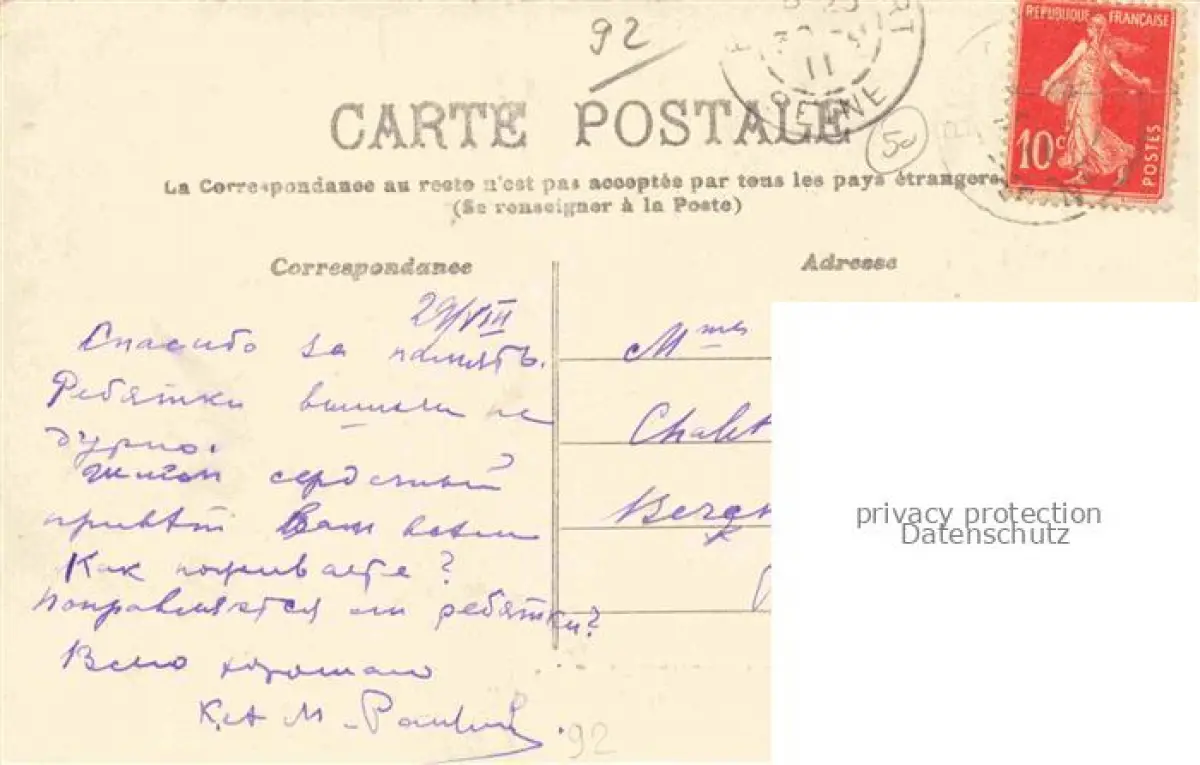 92
RT
11
SEINE
50
REPUBLIQUE FRANÇAISE
10c
POSTES
CARTE POSTALE
La Correspondance au recto n'est pas acceptée par tous les pays étrangers
(Se renseigner à la Poste)
Correspondance
Adresse
29/VIII
Спасибо за память.
Ребятки вышли не
дурно.
Шлем сердечный
привет Вам всем
Как поживаете?
Поправляются ли ребятки?
Всего хорошего
К. и М.
92
Mmes
Chalet
privacy protection
Datenschutz